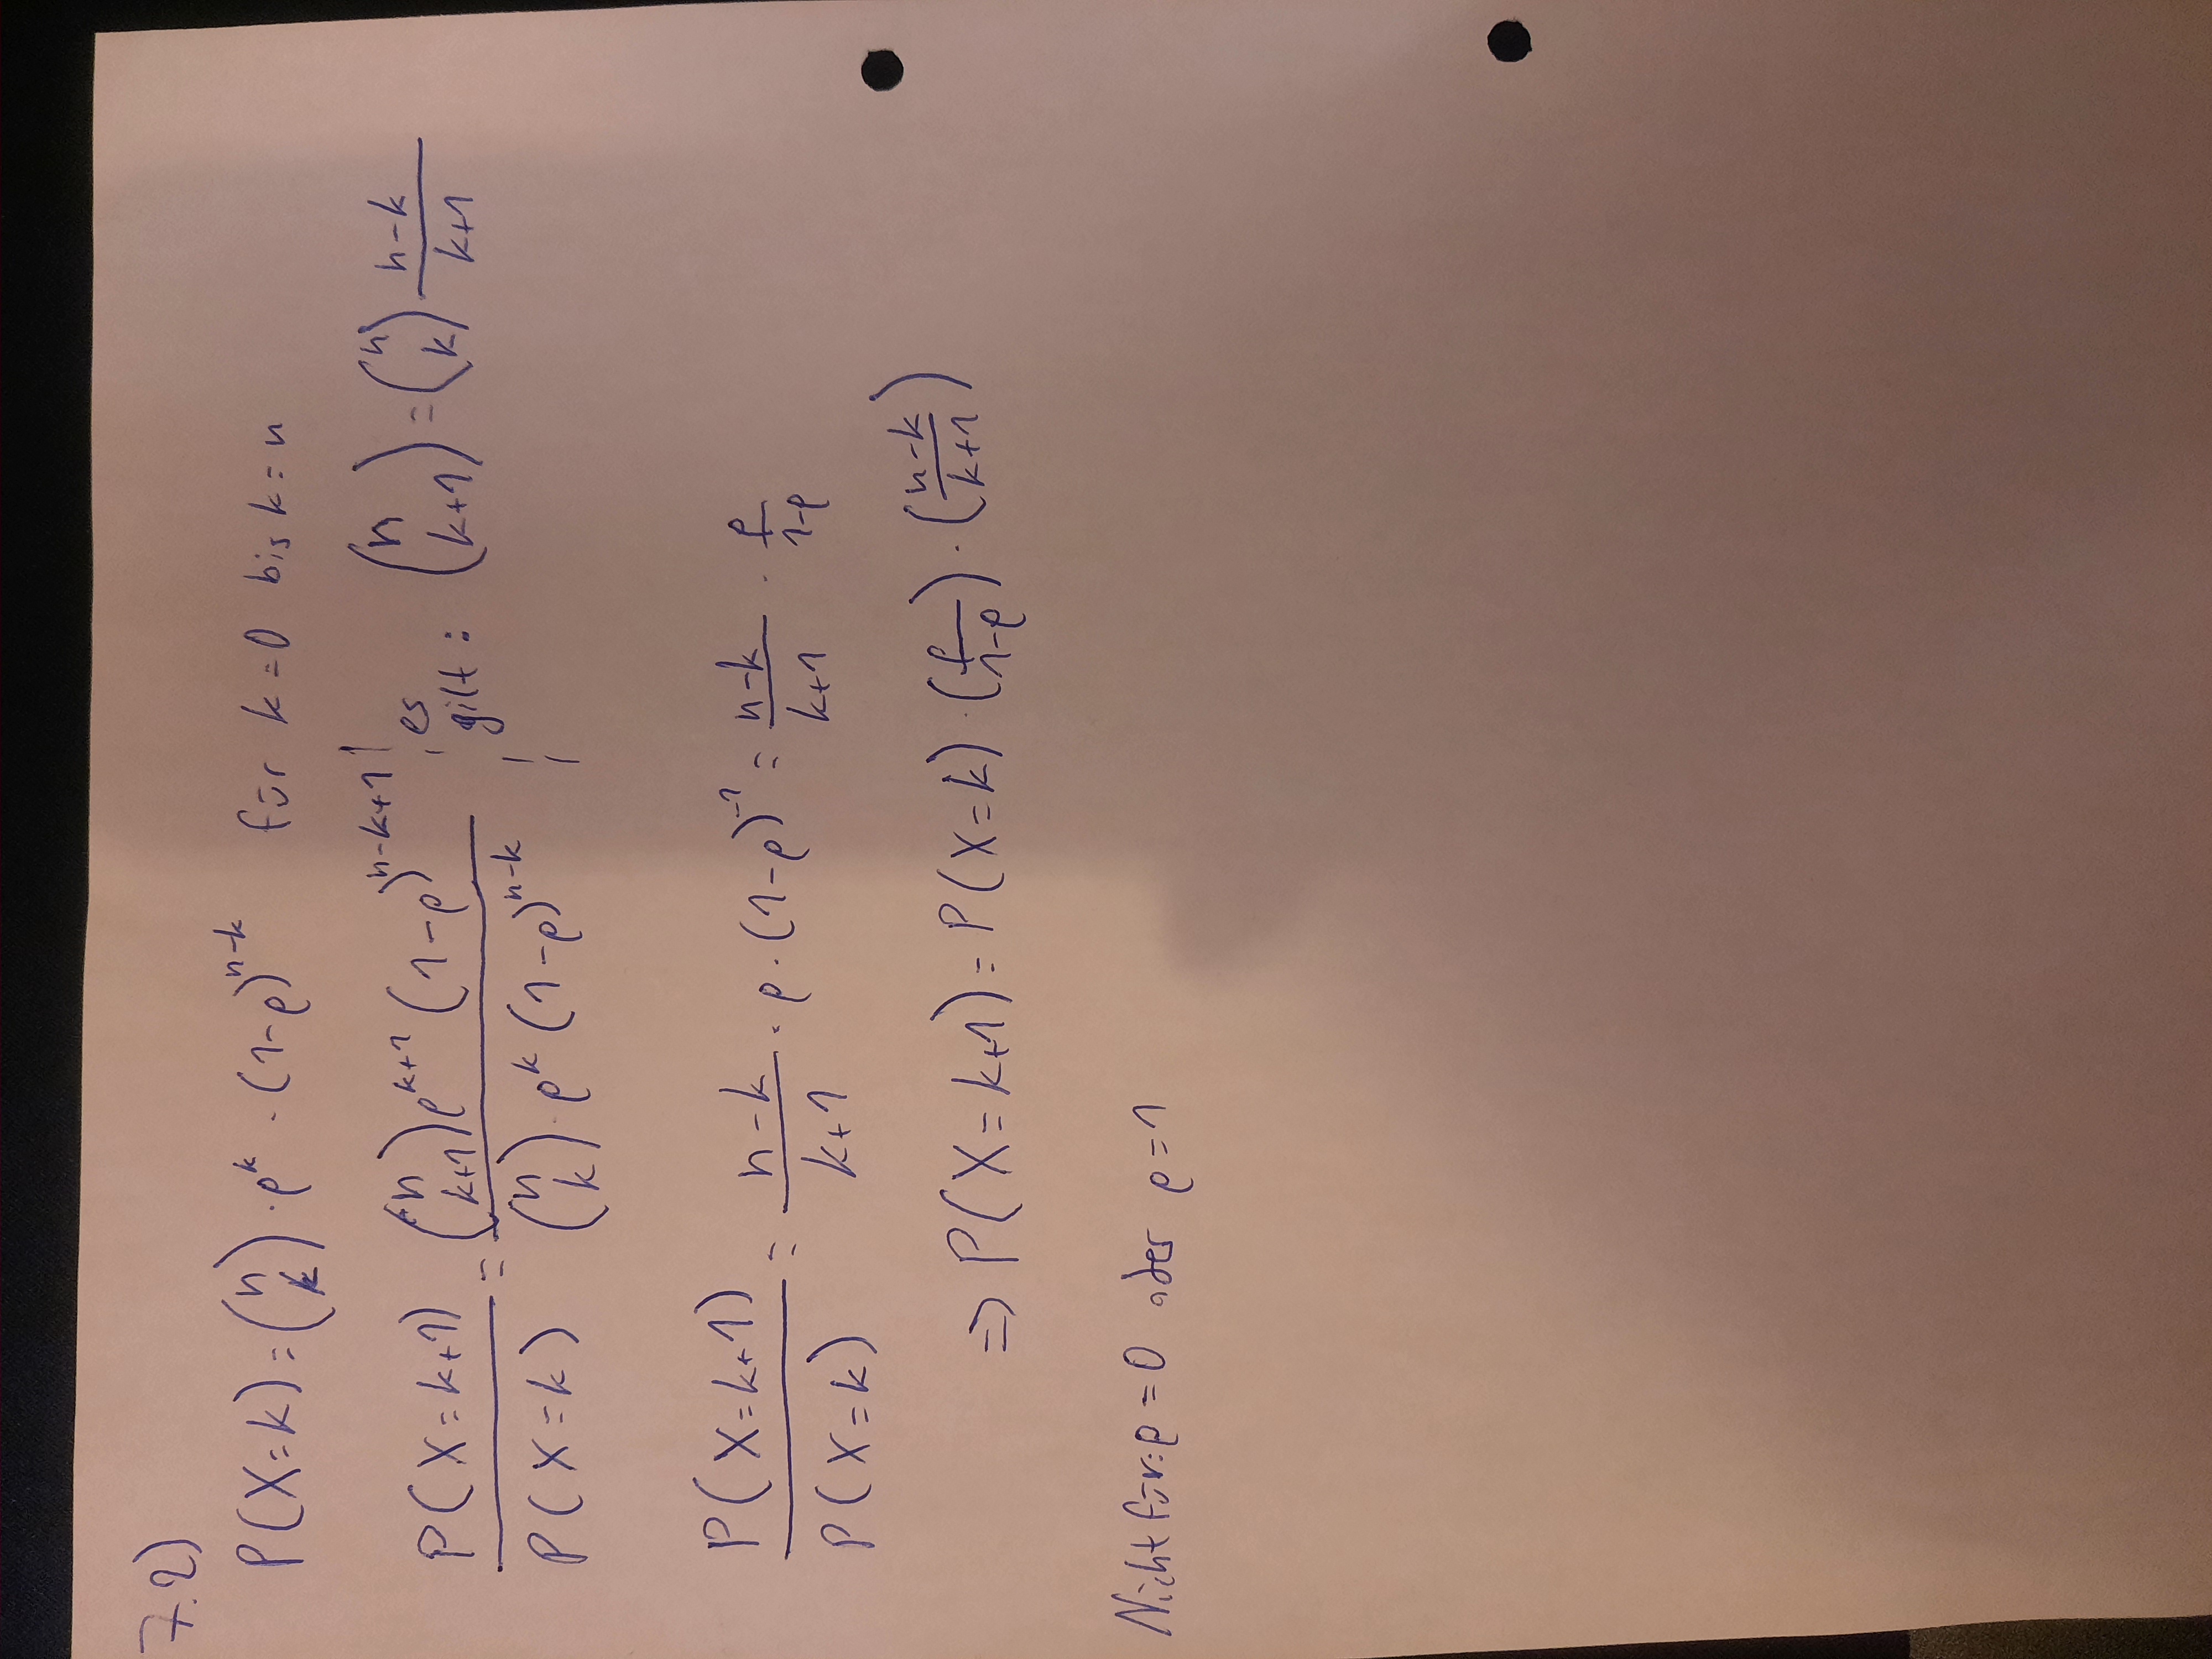 7.2)
P(X=k) = (n k) · p^k · (1-p)^(n-k) für k=0 bis k=n
P(X=k+1) / P(X=k) = (n k+1) p^(k+1) (1-p)^(n-k+1) / (n k) · p^k (1-p)^(n-k) | es gilt: (n k+1) = (n k) (n-k)/(k+1)
P(X=k+1) / P(X=k) = (n-k)/(k+1) · p · (1-p)^(-1) = (n-k)/(k+1) · p/(1-p)
⇒ P(X=k+1) = P(X=k) · (p/(1-p)) · ((n-k)/(k+1))
Nicht für: p=0 oder p=1